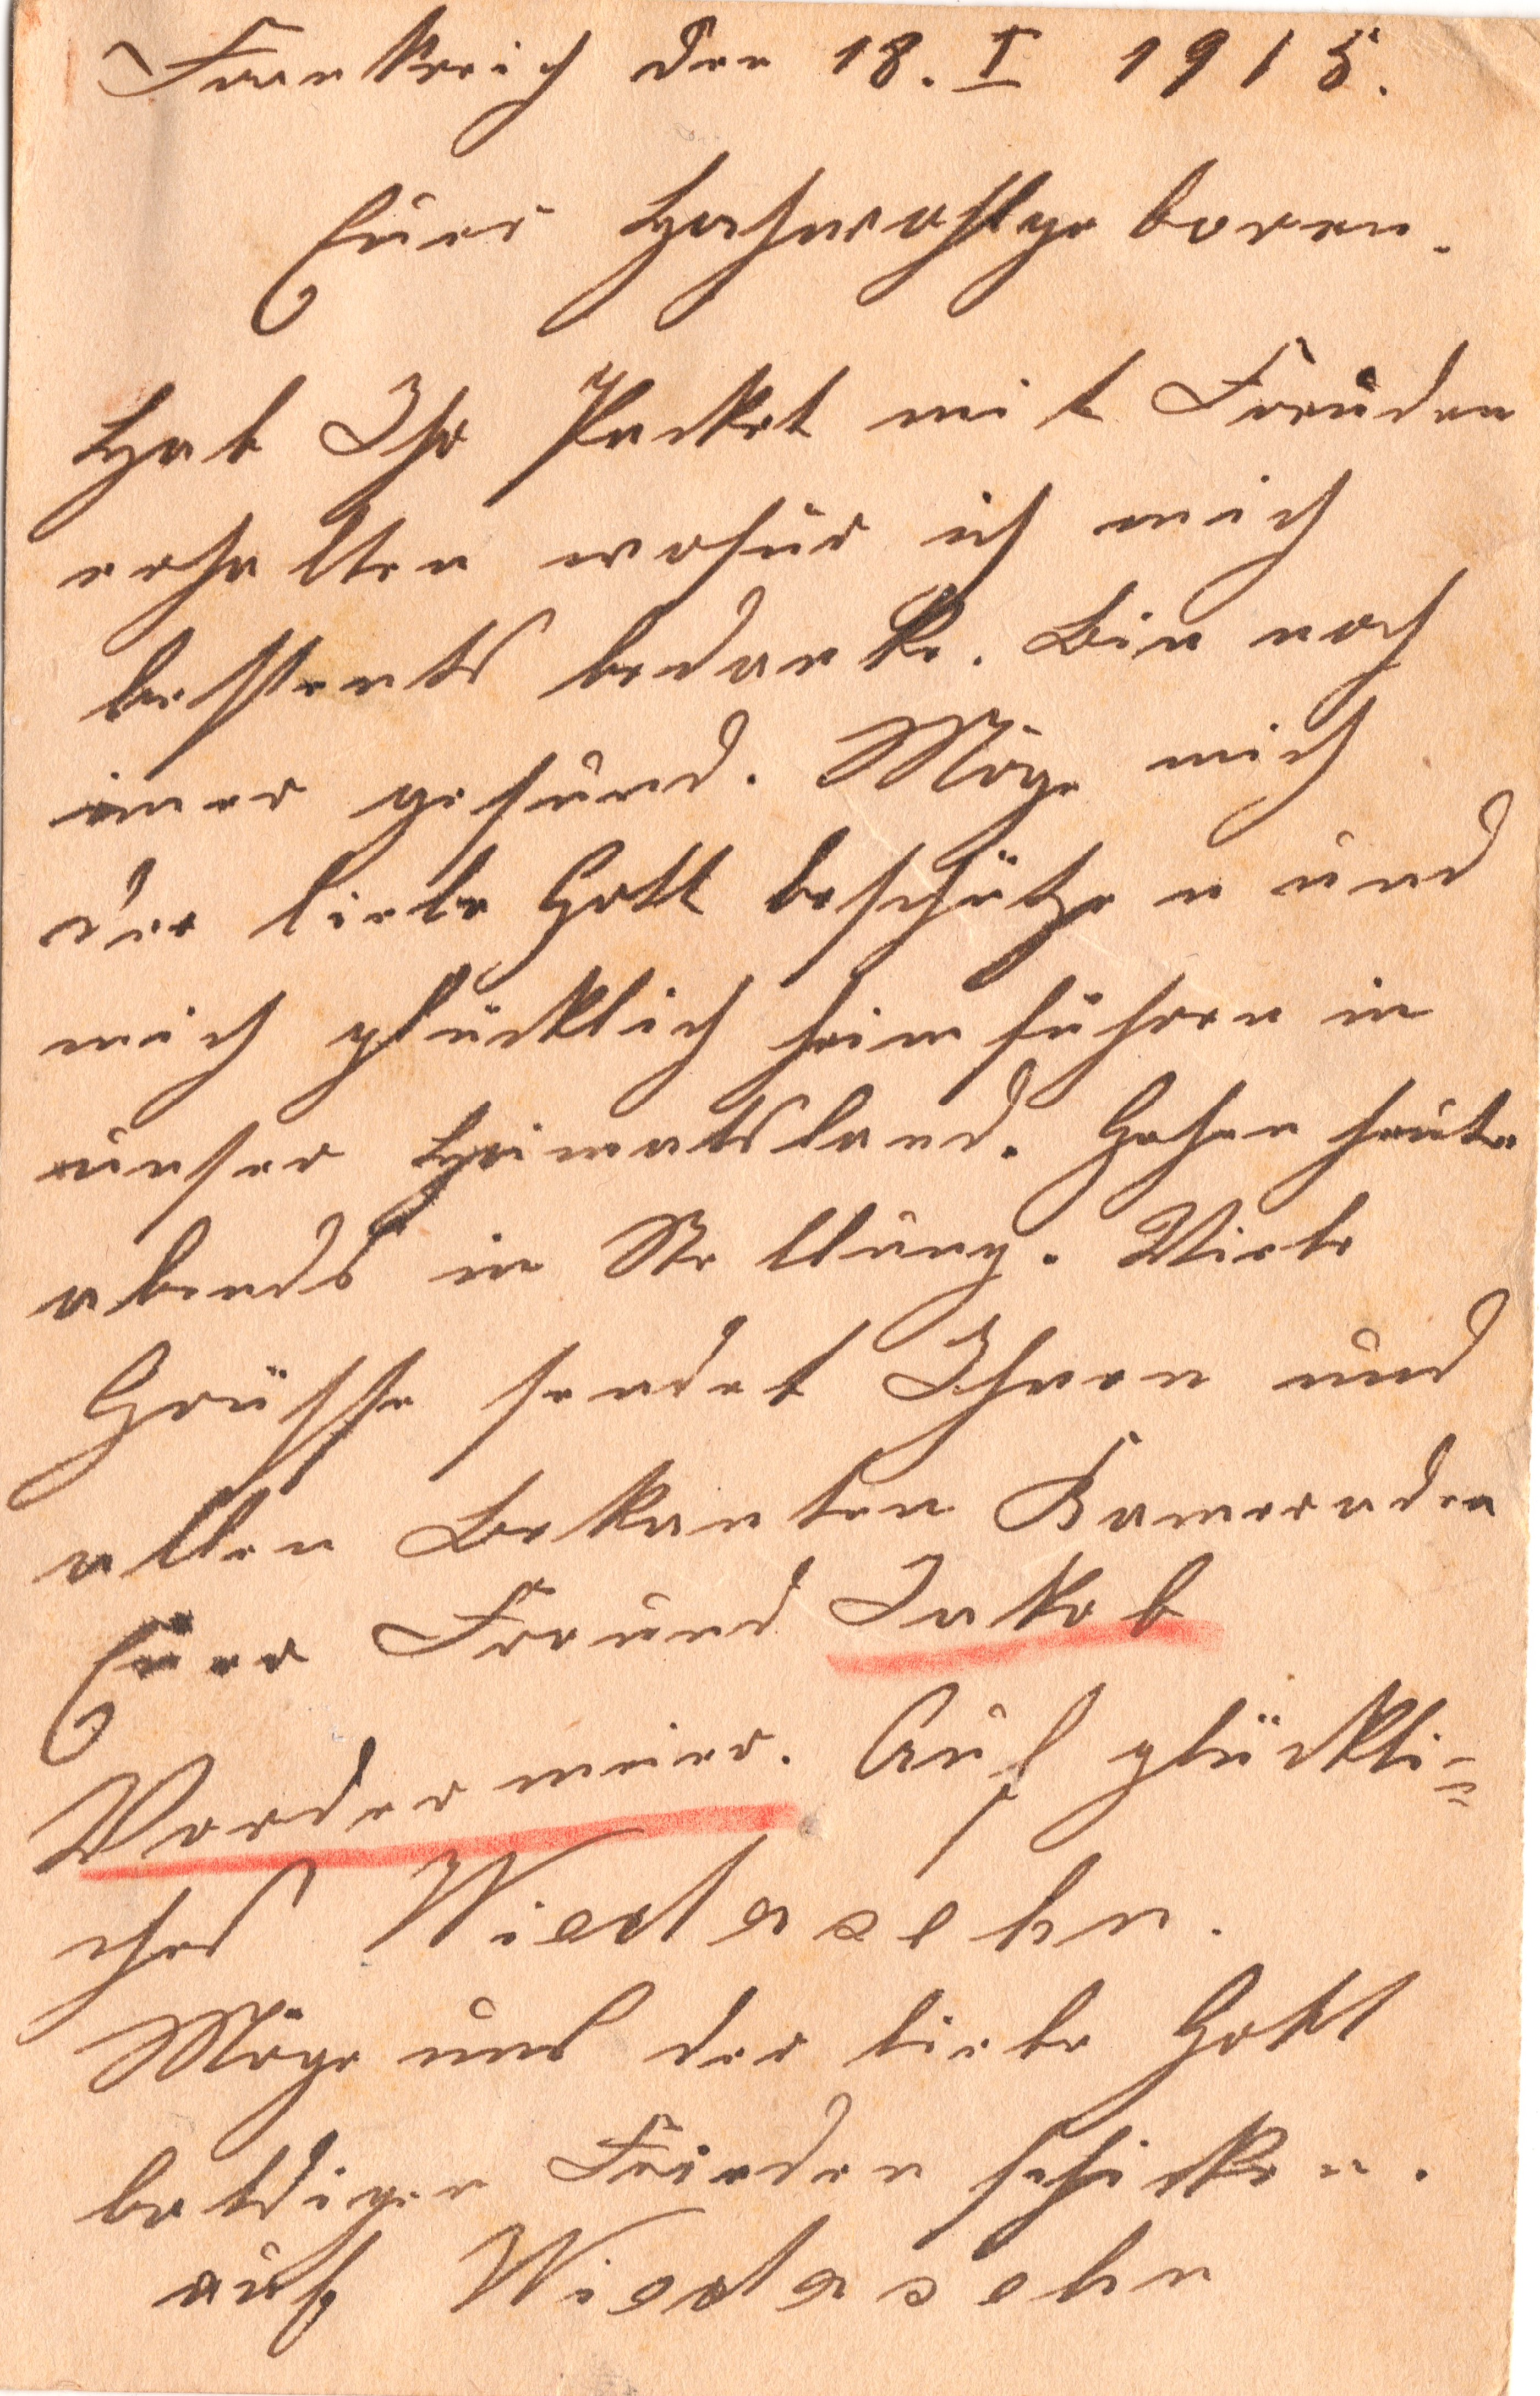 Frankreich den 18. I 1915.
Euer Hochwohlgeboren.
Hab Ihr Packet mit Freuden
erhalten wofür ich mich
bestents bedanke. Bin noch
imer gesund. Möge mich
der liebe Gott beschützen und
mich glücklich heimführen in
unser Heimatsland. Gehen heute
abends in Stellung. Viele
Grüsse sendet Ihnen und
allen Bekanten Kameraden
Euer Freund Jakob
Vordermeier. Auf glückli=
ches Wiedasehn.
Möge uns der liebe Gott
baldigen Frieden schicken.
auf Wiedasehn